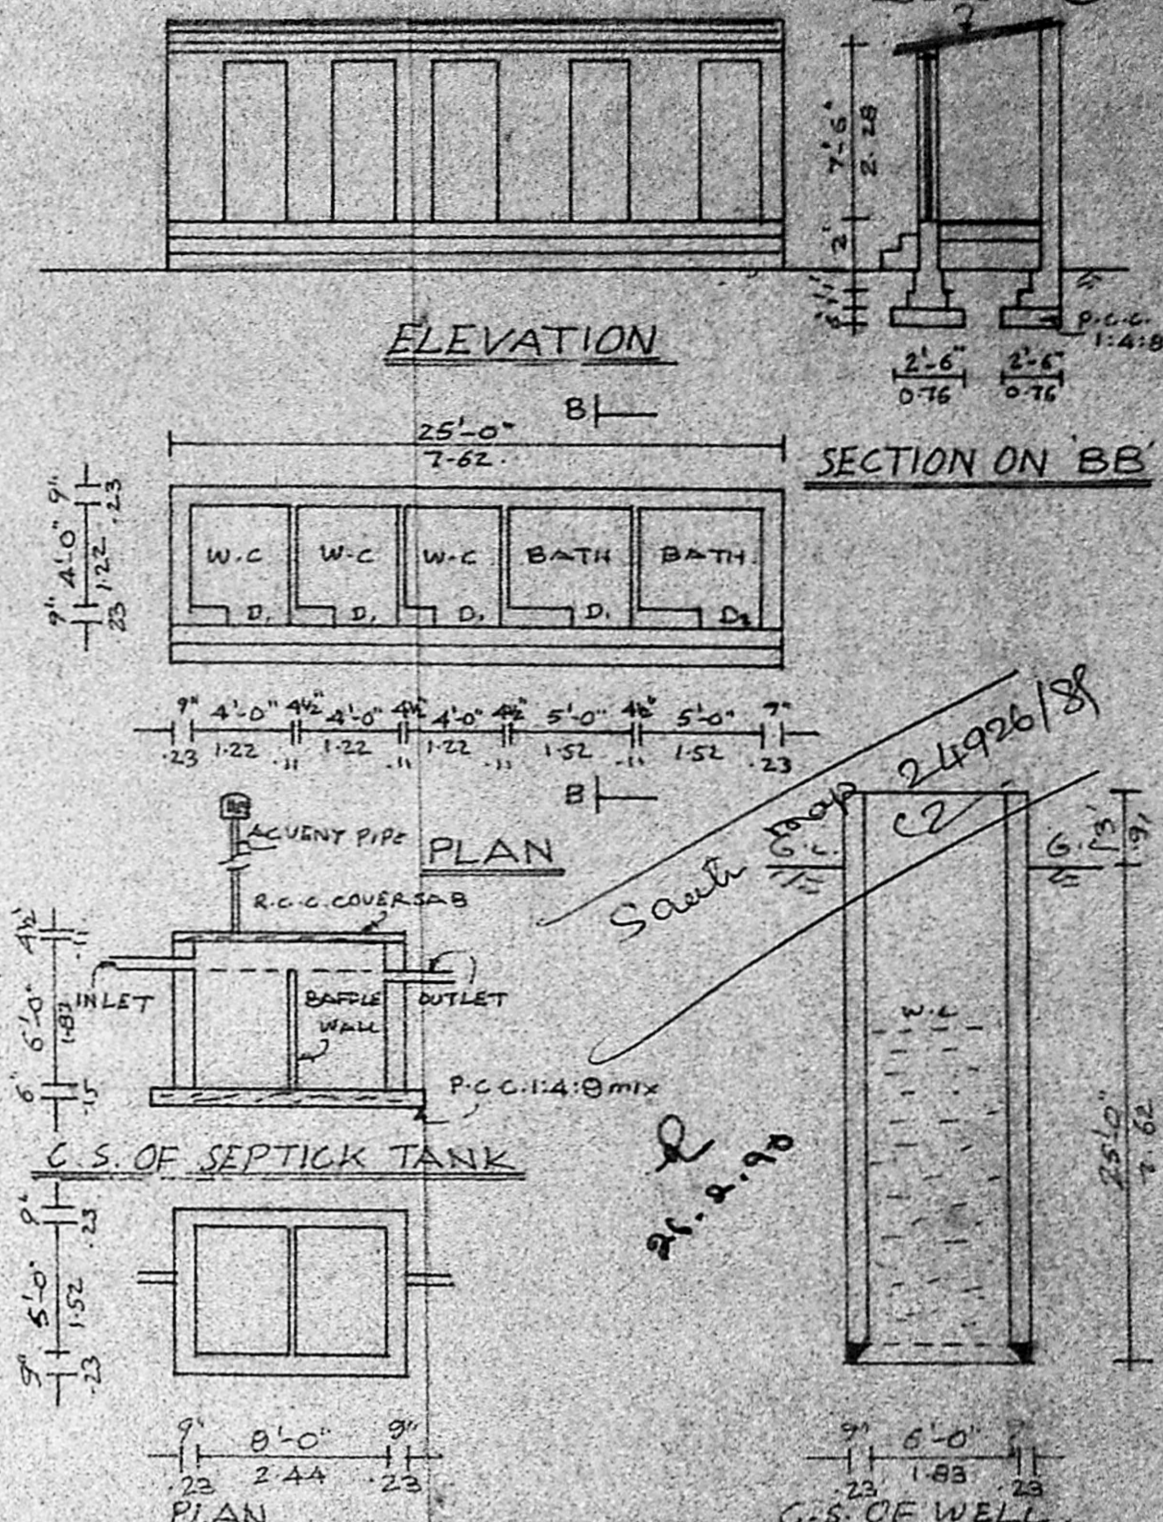 7'-6"
2.28
2'
P.C.C.
1:4:8
2'-6" 2'-6"
0.76 0.76
ELEVATION
SECTION ON 'BB'
B
25'-0"
7.62.
9" 4'-0" 9"
.23 1.22 .23
W.C W.C W.C BATH BATH
D. D. D. D. D
9" 4'-0" 4½" 4'-0" 4½" 4'-0" 4½" 5'-0" 4½" 5'-0" 9"
.23 1.22 .11 1.22 .11 1.22 .11 1.52 .11 1.52 .23
B
PLAN
A.C VENT PIPE
R.C.C. COVER SAB
4½"
.11
INLET
BAFFLE
WALL
OUTLET
6'-0"
1.83
6"
.15
P.C.C. 1:4:8 mix
C.S. OF SEPTICK TANK
9" 5'-0" 9"
.23 1.52 .23
9" 8'-0" 9"
.23 2.44 .23
PLAN
24926/89
C2
G.L. G.L
3'
.91
W.L
25'-0"
7.62
9" 6'-0" 9"
.23 1.83 .23
C.S. OF WELL